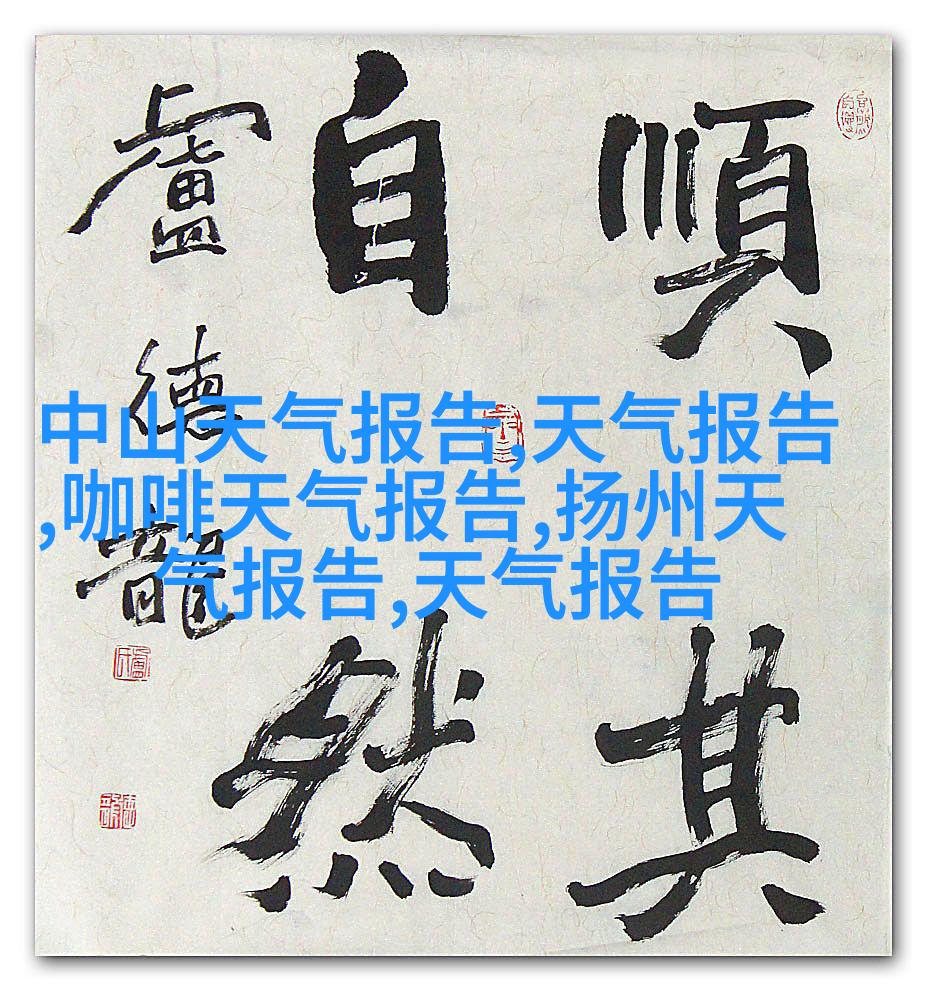 順其
自然
盧德龍
中山天气报告,天气报告
,咖啡天气报告,扬州天
气报告,天气报告